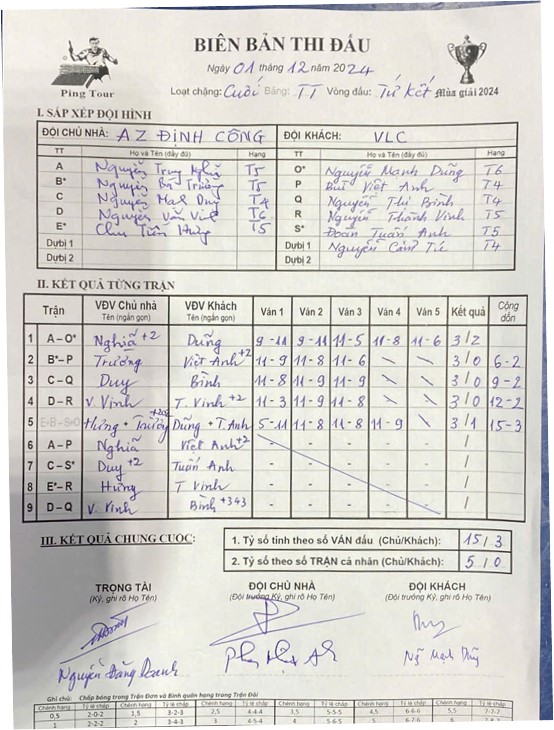 BIÊN BẢN THI ĐẤU
Ping Tour
Ngày 01 tháng 12 năm 2024
Loạt chặng: Cuối Bảng: TT Vòng đấu: Tứ kết Mùa giải 2024
I. SẮP XẾP ĐỘI HÌNH
ĐỘI CHỦ NHÀ: AZ ĐỊNH CÔNG ĐỘI KHÁCH: VLC
TT Họ và Tên (đầy đủ) Hạng TT Họ và Tên (đầy đủ) Hạng
A Nguyễn Trung Nghĩa T5 O* Nguyễn Mạnh Dũng T6
B* Nguyễn Bá Trường T5 P Bùi Việt Anh T4
C Nguyễn Mạnh Duy T4 Q Nguyễn Thị Bình T4
D Nguyễn Văn Vinh T6 R Nguyễn Thành Vinh T5
E* Chu Tiến Hưng T5 S* Đoàn Tuấn Anh T5
Dự bị 1 Dự bị 1 Nguyễn Cẩm Tú T4
Dự bị 2 Dự bị 2
II. KẾT QUẢ TỪNG TRẬN
Trận VĐV Chủ nhà VĐV Khách Ván 1 Ván 2 Ván 3 Ván 4 Ván 5 Kết quả Cộng dồn
Tên (ngắn gọn) Tên (ngắn gọn)
1 A – O* Nghĩa +2 Dũng 9 - 11 9 - 11 11 - 5 11 - 8 11 - 6 3 / 2
2 B* – P Trường Việt Anh +2 11 - 9 11 - 8 11 - 6 3 / 0 6-2
3 C – Q Duy Bình 11 - 8 11 - 9 11 - 8 3 / 0 9-2
4 D – R V. Vinh T. Vinh +2 11 - 3 11 - 9 11 - 9 3 / 0 12-2
5 Hưng + Trường Dũng + T.Anh 5 - 11 11 - 8 11 - 8 11 - 9 3 / 1 15-3
6 A – P Nghĩa Việt Anh +2 - - - - - /
7 C – S* Duy +2 Tuấn Anh - - - - - /
8 E* – R Hưng T Vinh - - - - - /
9 D – Q V. Vinh Bình +343 - - - - - /
III. KẾT QUẢ CHUNG CUỘC:
1. Tỷ số tính theo số VÁN đấu (Chủ/Khách): 15 / 3
2. Tỷ số theo số TRẬN cá nhân (Chủ/Khách): 5 / 0
TRỌNG TÀI ĐỘI CHỦ NHÀ ĐỘI KHÁCH
(Ký, ghi rõ Họ Tên) (Đội trưởng Ký, ghi rõ Họ Tên) (Đội trưởng Ký, ghi rõ Họ Tên)
Nguyễn Đăng Doanh
Ghi chú: Chấp bóng trong Trận Đơn và Bình quân hạng trong Trận Đôi
Chênh hạng Tỷ lệ chấp Chênh hạng Tỷ lệ chấp Chênh hạng Tỷ lệ chấp Chênh hạng Tỷ lệ chấp Chênh hạng Tỷ lệ chấp Chênh hạng Tỷ lệ chấp
0,5 2-0-2 1,5 3-2-3 2,5 4-4-4 3,5 5-5-5 4,5 6-6-6 5,5 7-7-7
1 2-2-2 2 3-4-3 3 4-5-4 4 5-6-5 5 6-7-6 6